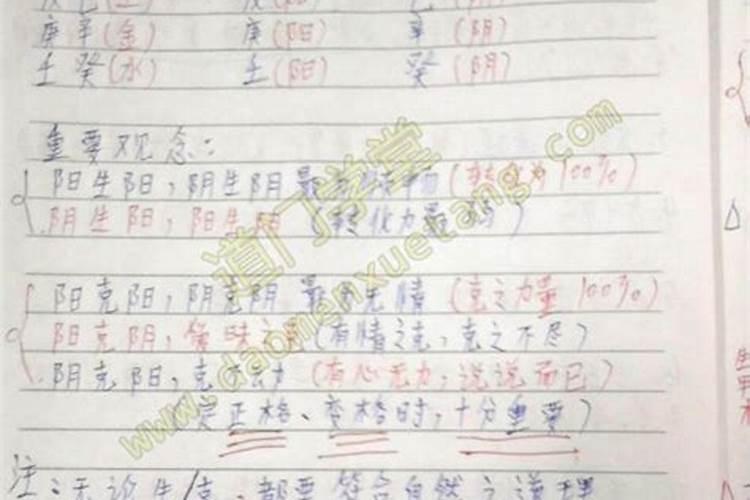 庚辛(金) 庚(阳) 辛(阴)
壬癸(水) 壬(阳) 癸(阴)
重要观念:
阳生阳,阴生阴 最 100%)
阴生阳,阳生阴 (转化力最
阳克阳,阴克阴 最为无情 (克之力量 100%)
阳克阴, (有情之克,克之不尽)
阴克阳,克 (有心无力,说说而已)
(定正格、变格时,十分重要)
注:无论生/克,都要符合自然之道理
道门学堂
www.daomenxuetang.com